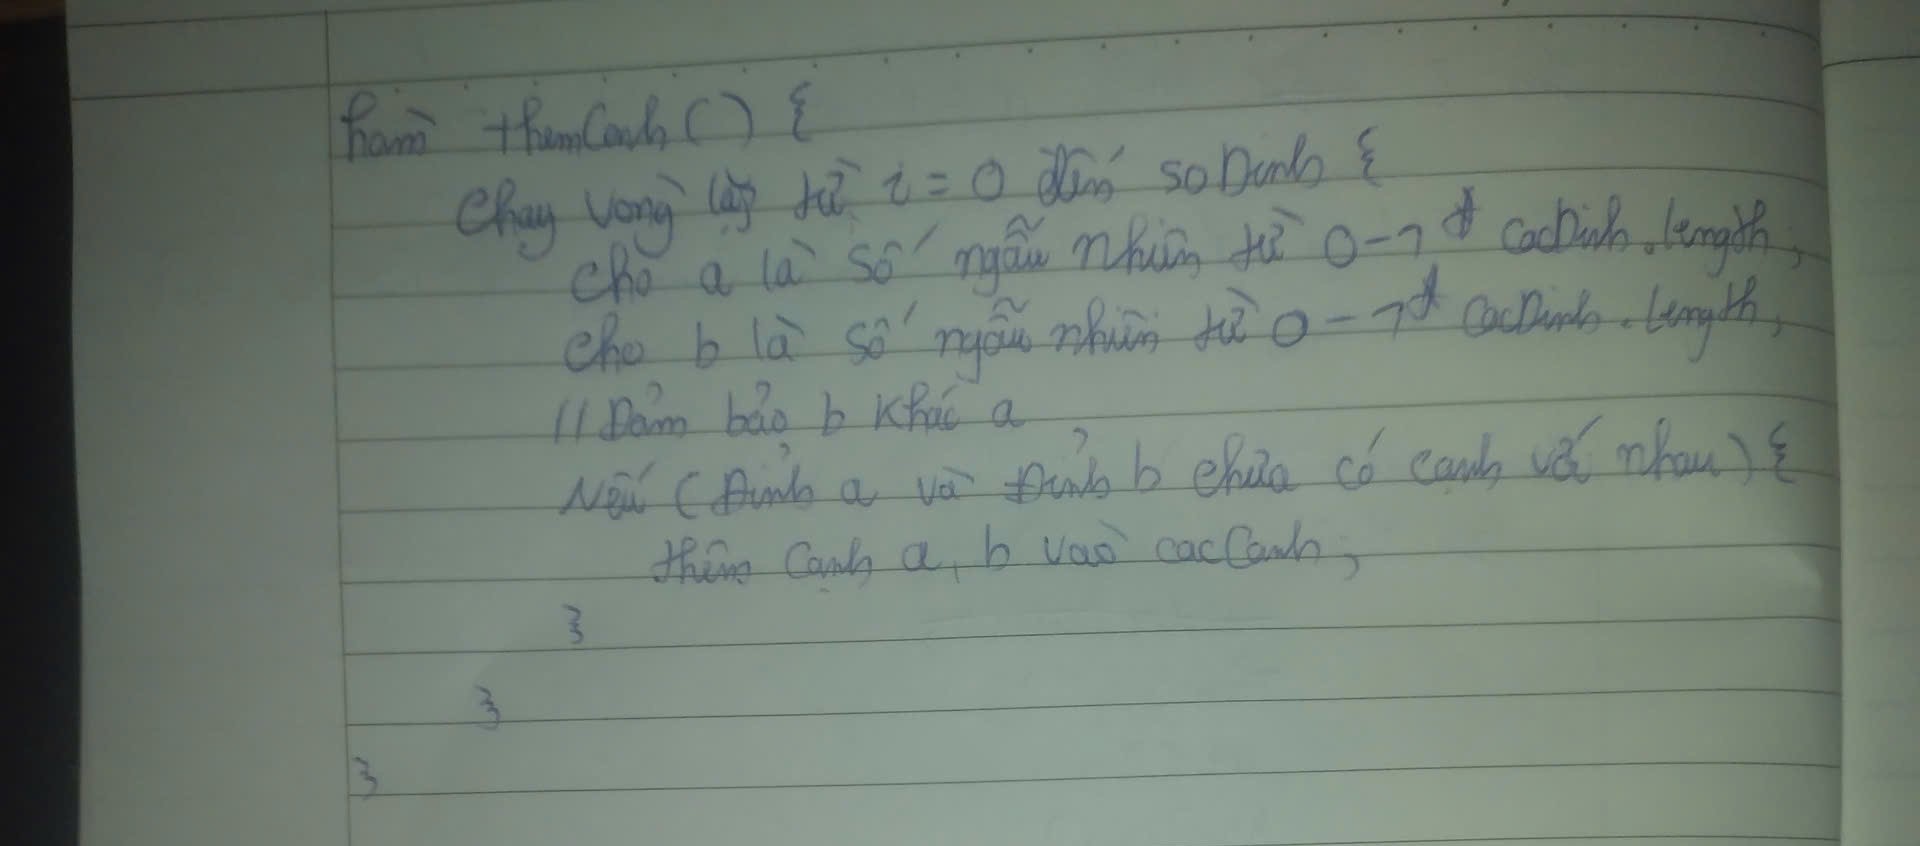 hàm themCanh() {
Chạy vòng lặp từ i = 0 đến soDinh {
cho a là số ngẫu nhiên từ 0-1 * cacDinh.length;
cho b là số ngẫu nhiên từ 0-1 * cacDinh.length;
// Đảm bảo b khác a
Nếu (Đỉnh a và Đỉnh b chưa có cạnh với nhau) {
thêm cạnh a, b vào cacCanh;
}
}
}